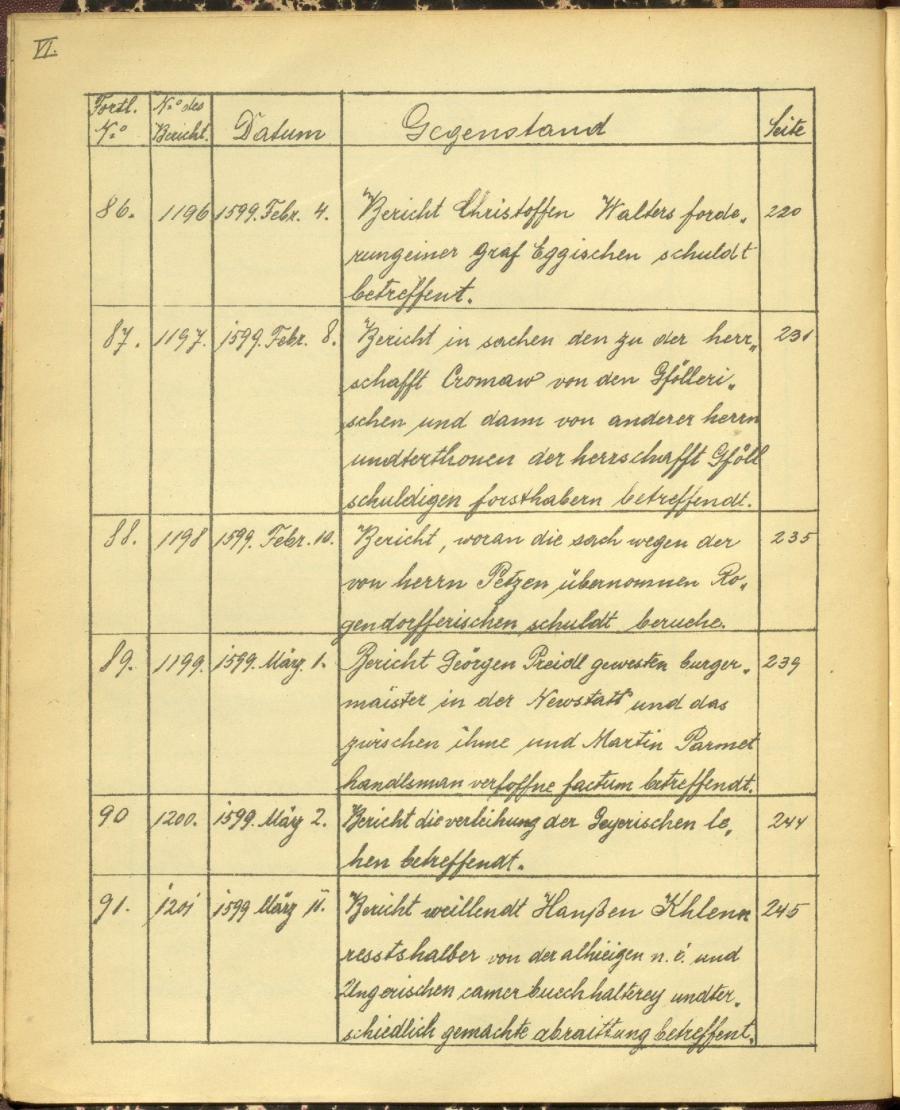 VI.
Fortl. N.º des
N.º Bericht. Datum Gegenstand Seite
86. 1196 1599. Febr. 4. Bericht Christoffen Walters forde„ 220
rung einer Graf Eggischen schuldt
betreffent.
87. 1197. 1599. Febr. 8. Bericht in sachen den zu der herr„ 231
schafft Cromaw von den Gfölleri„
schen und dann von anderer herrn
undterthonen der herrschafft Gföll
schuldigen forsthabern betreffendt.
88. 1198 1599. Febr. 10. Bericht, woran die sach wegen der 235
von herrn Petzen übernomnen Ro„
gendorfferischen schuldt beruehe.
89. 1199. 1599. März. 1. Bericht Geörgen Preidl gewesten burger„ 239
maister in der Newstatt und das
zwischen ihme und Martin Parmet
handlsman verloffne factum betreffendt.
90 1200. 1599. März 2. Bericht die verleihung der Geyerischen le„ 244
hen betreffendt.
91. 1201 1599 März 11. Bericht weillendt Hanßen Khlenn 245
resstshalber von der alhieigen n. ö. und
Ungerischen camer buechhalterey undter„
schiedlich gemachte abraittung betreffent.